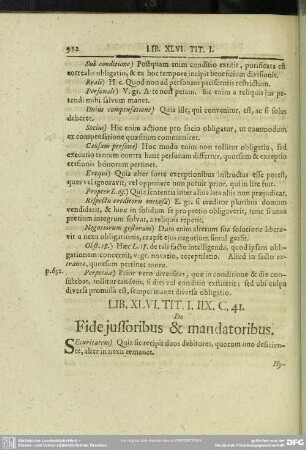 952 LIB. XLVI. TIT. I.
Sub conditione) Postquam enim conditio extitit, purificata est
correalis obligatio, & ex hoc tempore incipit beneficium divisionis.
Reali) H. e. Quod non ad personam præsentis restrictum.
Personali) V. gr. A te non petam. Sic enim a reliquis jus pe-
tendi mihi salvum manet.
Unius compensatione) Quia iste, qui convenitur, est, ac si solus
deberet.
Socius) Hic enim actione pro socio obligatur, ut commodum
ex compensatione quæsitum communicet.
Causam personæ) Hoc modo enim non tollitur obligatio, sed
executio tantum contra hunc personam differtur, quorsum & exceptio
cessionis bonorum pertinet.
Exequi) Quia alter forte exceptionibus instructus esse potest,
quas vel ignoravit, vel opponere non potuit prior, qui in lite fuit.
Propter L. 63.) Quia sententia inter alios lata aliis non præjudicat.
Respectu creditoris
E. gr. si creditor pluribus domum
vendiderit, & hinc in solidum se pro pretio obligaverit, tunc si unus
pretium integrum solvat, reliquis reperit.
Negotiorum gestorum) Dum enim alterum sua solutione libera-
vit a nexu obligationis, reapse ejus negotium simul gessit.
Obst. 18.) Hæc L. 18. de tali facto intelligenda, quod ipsam obli-
gationem concernit, v. gr. novatio, receptilatio. Aliud in facto ex-
traneo, quorsum pertinet mora.
p. 632. Perpetua) Prior vero diversitas, quæ in conditione & die con-
sistebat, tollitur tandem, si dies vel conditio exstiterit; sed ubi culpa
diversa promissa est, semper manet diversa obligatio.
LIB. XLVI. TIT. I. IIX. C. 41.
De
Fidejussoribus & mandatoribus.
Securitatem) Quia sic recipit duos debitores, quorum uno deficien-
te, alter in nexu remanet.
Hy-